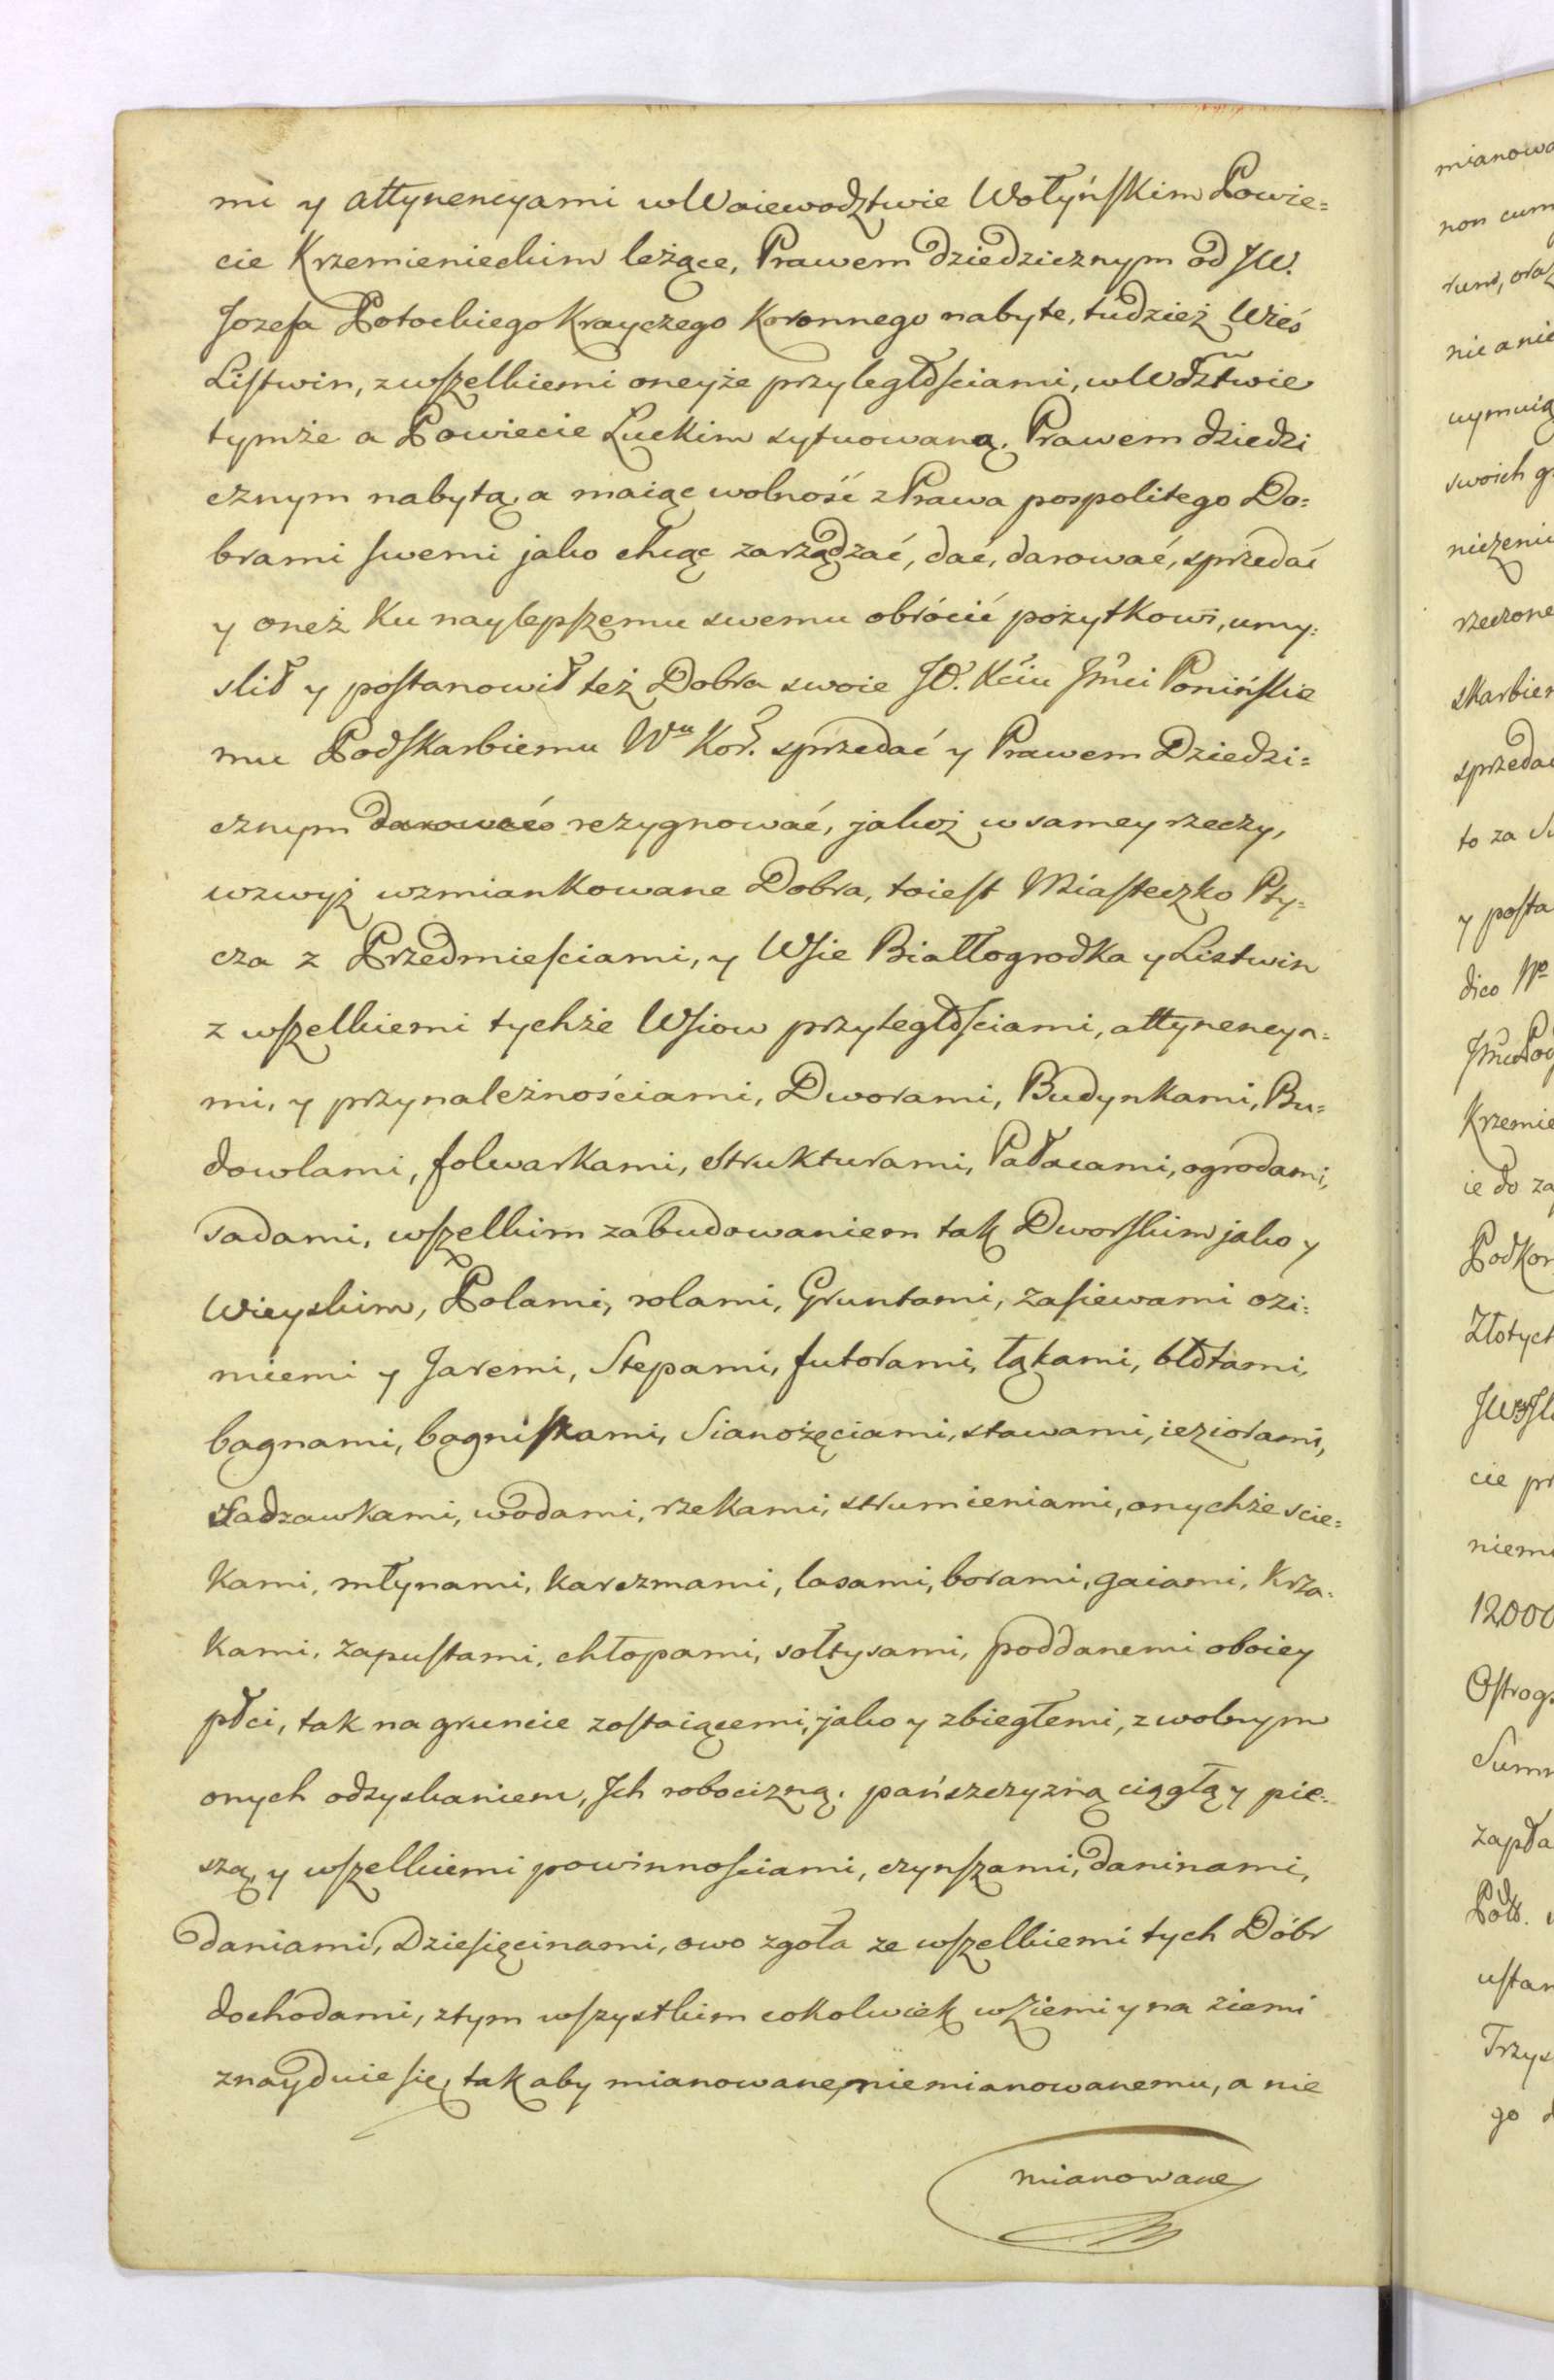 mi y attynencyami w Woiewodztwie Wołyńskim Powie=
cie Krzemienieckim leżące, Prawem dziedzicznym od JW.
Jozefa Potockiego Krayczego Koronnego nabyte, tudzież Wieś
Listwin, z wszelkiemi oneyże przyległościami, w Wdztwie
tymże a Powiecie Łuckim sytuowaną, Prawem dziedzi
cznym nabytą, a maiąc wolność z Prawa pospolitego Do=
brami swemi jako chcąc zarządzać, dać, darować, sprzedać
y oneż ku naylepszemu swemu obrócić pożytkowi, umy=
slił y postanowił też Dobra swoie JO. Kciu Jmci Poninskie
mu Podskarbiemu Wu Kor. sprzedać y Prawem Dziedzi=
cznym darować rezygnować, jakoż w samey rzeczy,
wzwyż wzmiankowane Dobra, toiest Miasteczko Pty=
cza z Przedmiesciami, y Wsie Białłogrodka y Listwin
z wszelkiemi tychże Wsiow przyległościami, attynencya=
mi, y przynależnościami, Dworami, Budynkami, Bu=
dowlami, folwarkami, strukturami, Pałacami, ogrodami,
sadami, wszelkim zabudowaniem tak Dworskim jako y
Wieyskim, Polami, rolami, Gruntami, zasiewami ozi=
miemi y Jaremi, Stepami, futorami, łąkami, błotami,
bagnami, bagniskami, Sianożęciami, stawami, ieziorami,
sadzawkami, wodami, rzekami, strumieniami, onychże scie=
kami, młynami, karczmami, lasami, borami, gaiami, krza=
kami, zapustami, chłopami, sołtysami, poddanemi oboiey
płci, tak na gruncie zostaiącemi, jako y zbiegłemi, z wolnym
onych odzyskaniem, Ich robocizną, pańszczyzną ciągłą y pie=
szą, y wszelkiemi powinnosciami, czynszami, daninami,
daniami, Dziesięcinami, owo zgoła ze wszelkiemi tych Dóbr
dochodami, z tym wszystkim cokolwiek w Ziemi y na ziemi
znayduie się, tak aby mianowane, niemianowanemu, a nie
mianowane
mianowa
non cum
rum, oraz
nie a nie
uymuią
swoich g
niczenie
rzeczone
skarbiem
sprzedać
to za Su
y posta
dico No
Krzemie
ie do za
Podkor
Złotych
cie pr
niem
12000
Ostrogs
Summ
zapła
ustan
Trzys
go d